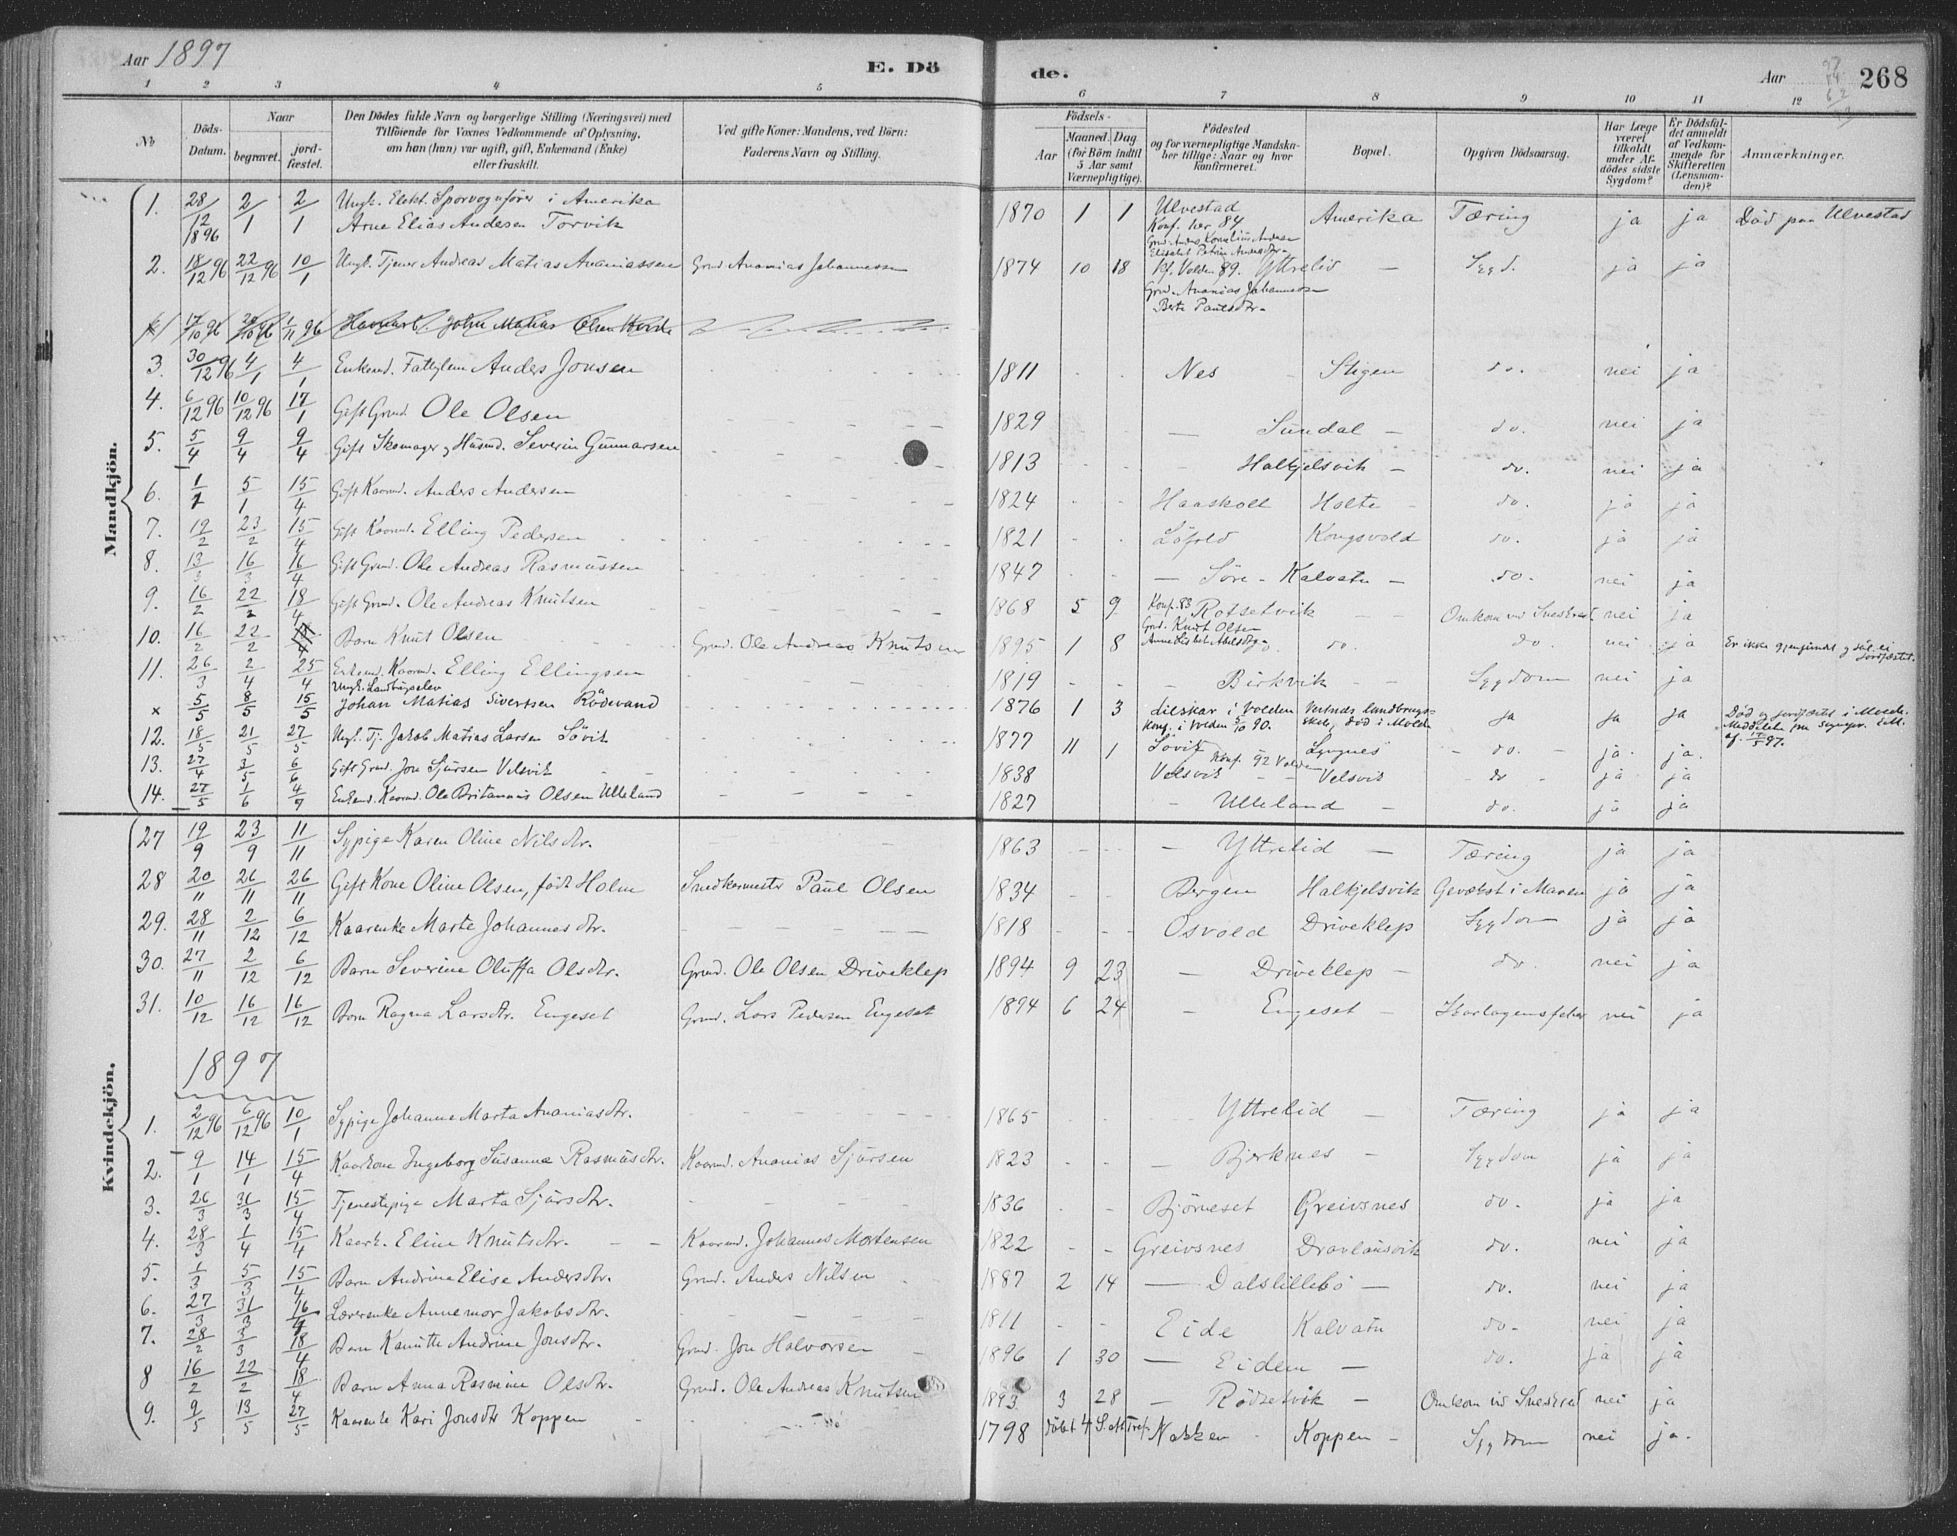 Aar 1897
E. Dö
de.
Aar
268
1 2 3 4 5 6 7 8 9 10 11 12
No
Döds-Datum.
Naar
begravet. jordfæstet.
Den Dödes fulde Navn og borgerlige Stilling (Næringsvei) med
Tilföiende for Voxnes Vedkommende af Oplysning,
om han (hun) var ugift, gift, Enkemand (Enke)
eller fraskilt.
Ved gifte Koner: Mandens, ved Börn:
Faderens Navn og Stilling.
Födsels-
Aar
Maaned. Dag
(for Börn indtil
5 Aar samt
Værnepligtige).
Födested
og for værnepligtige Mandskaber tillige: Naar og hvor
konfirmeret.
Bopæl.
Opgiven Dödsaarsag.
Har Læge
været
tilkaldt
under Afdödes sidste
Sygdom?
Er Dödsfaldet anmeldt
af Vedkommende for
Skifteretten
(Lensmanden)?
Anmærkninger.
Mandkjön.
1. 28/12 1896 2/1 2/1 Ungk. Elekt. Sporvognförer i Amerika
Arne Elias Andersen Torvik 1870 1 1 Ulvestad Konf. her 84 Grd. Anders Kornelius Andersen Elisabet Petrine Andersdtr. Amerika Tæring ja ja Död paa Ulvestad
2. 18/12 96 22/12 96 10/1 Ungk. Tjener Andreas Matias Ananiassen Grmd Ananias Johannessen 1874 10 18 Kf. Volden 89. Yttrelid — Sygd. ja ja
Grmd. Ananias Johannessen
Berte Paulsdtr.
17/10 96 1/11 96 John Matias Olsen
3. 30/12 96 4/1 4/1 Enkemd. Fattiglem Anders Jonsen 1811 Nes Stigen do. nei ja
4. 6/12 96 10/12 96 17/1 Gift Grmd. Ole Olsen 1829 — Sundal — do. nei ja
5. 5/4 9/4 9/4 Gift Skomager og Husmd. Severin Gunnarsen 1813 - Halkjelsvik — do. nei ja
6. 1/1 5/1 15/4 Gift Kaarmd. Anders Andersen 1824 Haaskoll Holte do. ja ja
7. 19/2 23/2 15/4 Gift Kaarmd. Elling Pedersen 1821 Löfold Kongsvold do. ja ja
8. 13/3 16/3 16/4 Gift Grmd. Ole Andreas Rasmussen 1847 — Söre-Kalvatn — do. nei ja
9. 16/2 22/2 18/4 Gift Grmd. Ole Andreas Knutsen 1868 5 9 Konf. 83 Rotsetvik Grd. Knut Olsen Omkom ved Sneskred nei ja
10. 16/2 22/2 Barn Knut Olsen Grmd. Ole Andreas Knutsen 1895 1 8 do. do nei ja Er ikke gjenfundet og saal. ei jordfæstet.
11. 26/3 2/4 25/4 Enkemd. Kaarmd. Elling Ellingsen 1819 - Birkvik - Sygdom nei ja
x 5/5 8/5 15/5 Ungk. Landbrugselev
Johan Matias Sivertsen Rödevand 1876 1 3 Lilskar i Volden Konf. i Volden 5/10 90. Vestnes landbrugsskole, död i Molde ja ja ja Död og jordfæstet i Molde. Meddelelse fra Sogneprr. af 17/5 97.
12. 18/5 21/5 27/5 Ungk. Tj. Jakob Matias Larsen Lövik 1877 11 1 Lövik Konf. 92 Volden Lyngnes - do. - ja. ja.
13. 27/4 3/5 6/6 Gift Grmd. Jon Sjursen Velsvik 1838 Velsvik - - Velsvik - do - ja ja
14. 27/5 1/6 4/7 Enkemd. Kaarmd. Ole Britannus Olsen Ulleland 1827 - Ulleland - do. ja ja
Kvindekjön.
27 19/9 23/9 11/11 Sypige Karen Oline Nilsdtr. 1863 - Yttrelid — Tæring ja ja
28 20/11 26/11 26/11 Gift Kone Oline Olsen, född Holm Snedkermester Paul Olsen 1834 Bergen Halkjelsvik Gevækst i Maven ja ja
29. 28/11 2/12 6/12 Kaarenke Marte Johannesdtr. 1818 Osvold Driveklep Sygdom ja ja
30. 27/11 2/12 6/12 Barn Severine Oluffa Olsdtr. Grmd. Ole Olsen Driveklep 1894 9 23 - Driveklep - do. nei ja
31. 10/12 16/12 16/12 Barn Ragna Larsdtr. Engeset Grmd. Lars Pedersen Engeset 1894 6 24 - Engeset - Skarlagensfeber nei ja
1897
1. 2/12 96 6/12 96 10/1 Sypige Johanne Marta Ananiasdtr. 1865 Yttrelid — Tæring ja ja
2. 9/1 14/1 15/4 Kaarkone Ingeborg Susanne Rasmusdtr. Kaarmd. Ananias Sjursen 1823 - Bjerknes - Sygdom ja ja
3. 26/3 31/3 15/4 Tjenestepige Marta Sjursdtr. 1836 Björneset Greivsnes do. ja ja
4. 28/3 1/4 15/4 Kaark. Eline Knutsdtr. Kaarmd. Johannes Mortensen 1822 Greivsnes Dravlausvik do. nei ja
5. 1/3 5/3 15/4 Barn Andrine Elise Andersdtr. Grmd. Anders Nilsen 1887 2 14 — Dalslillebö — do. nei ja
6. 27/3 31/3 16/4 Lærerenke Annemor Jakobsdtr. 1811 Eide Kalvatn do. nei ja
7. 28/2 3/3 18/4 Barn Kanutte Andrine Jonsdtr. Grmd. Jon Halvorsen 1896 1 30 — Eidem — do. ja ja
8 16/2 22/2 18/4 Barn Anna Rasmine Olsdtr. Grmd. Ole Andreas Knutsen 1893 3 28 - Rödsetvik - Omkom ved Sneskred nei ja
9. 9/5 13/5 27/5 Kaarenke Kari Jonsdtr Koppen 1798 döbt 4 S. Nakken Koppen - Sygdom nei ja.